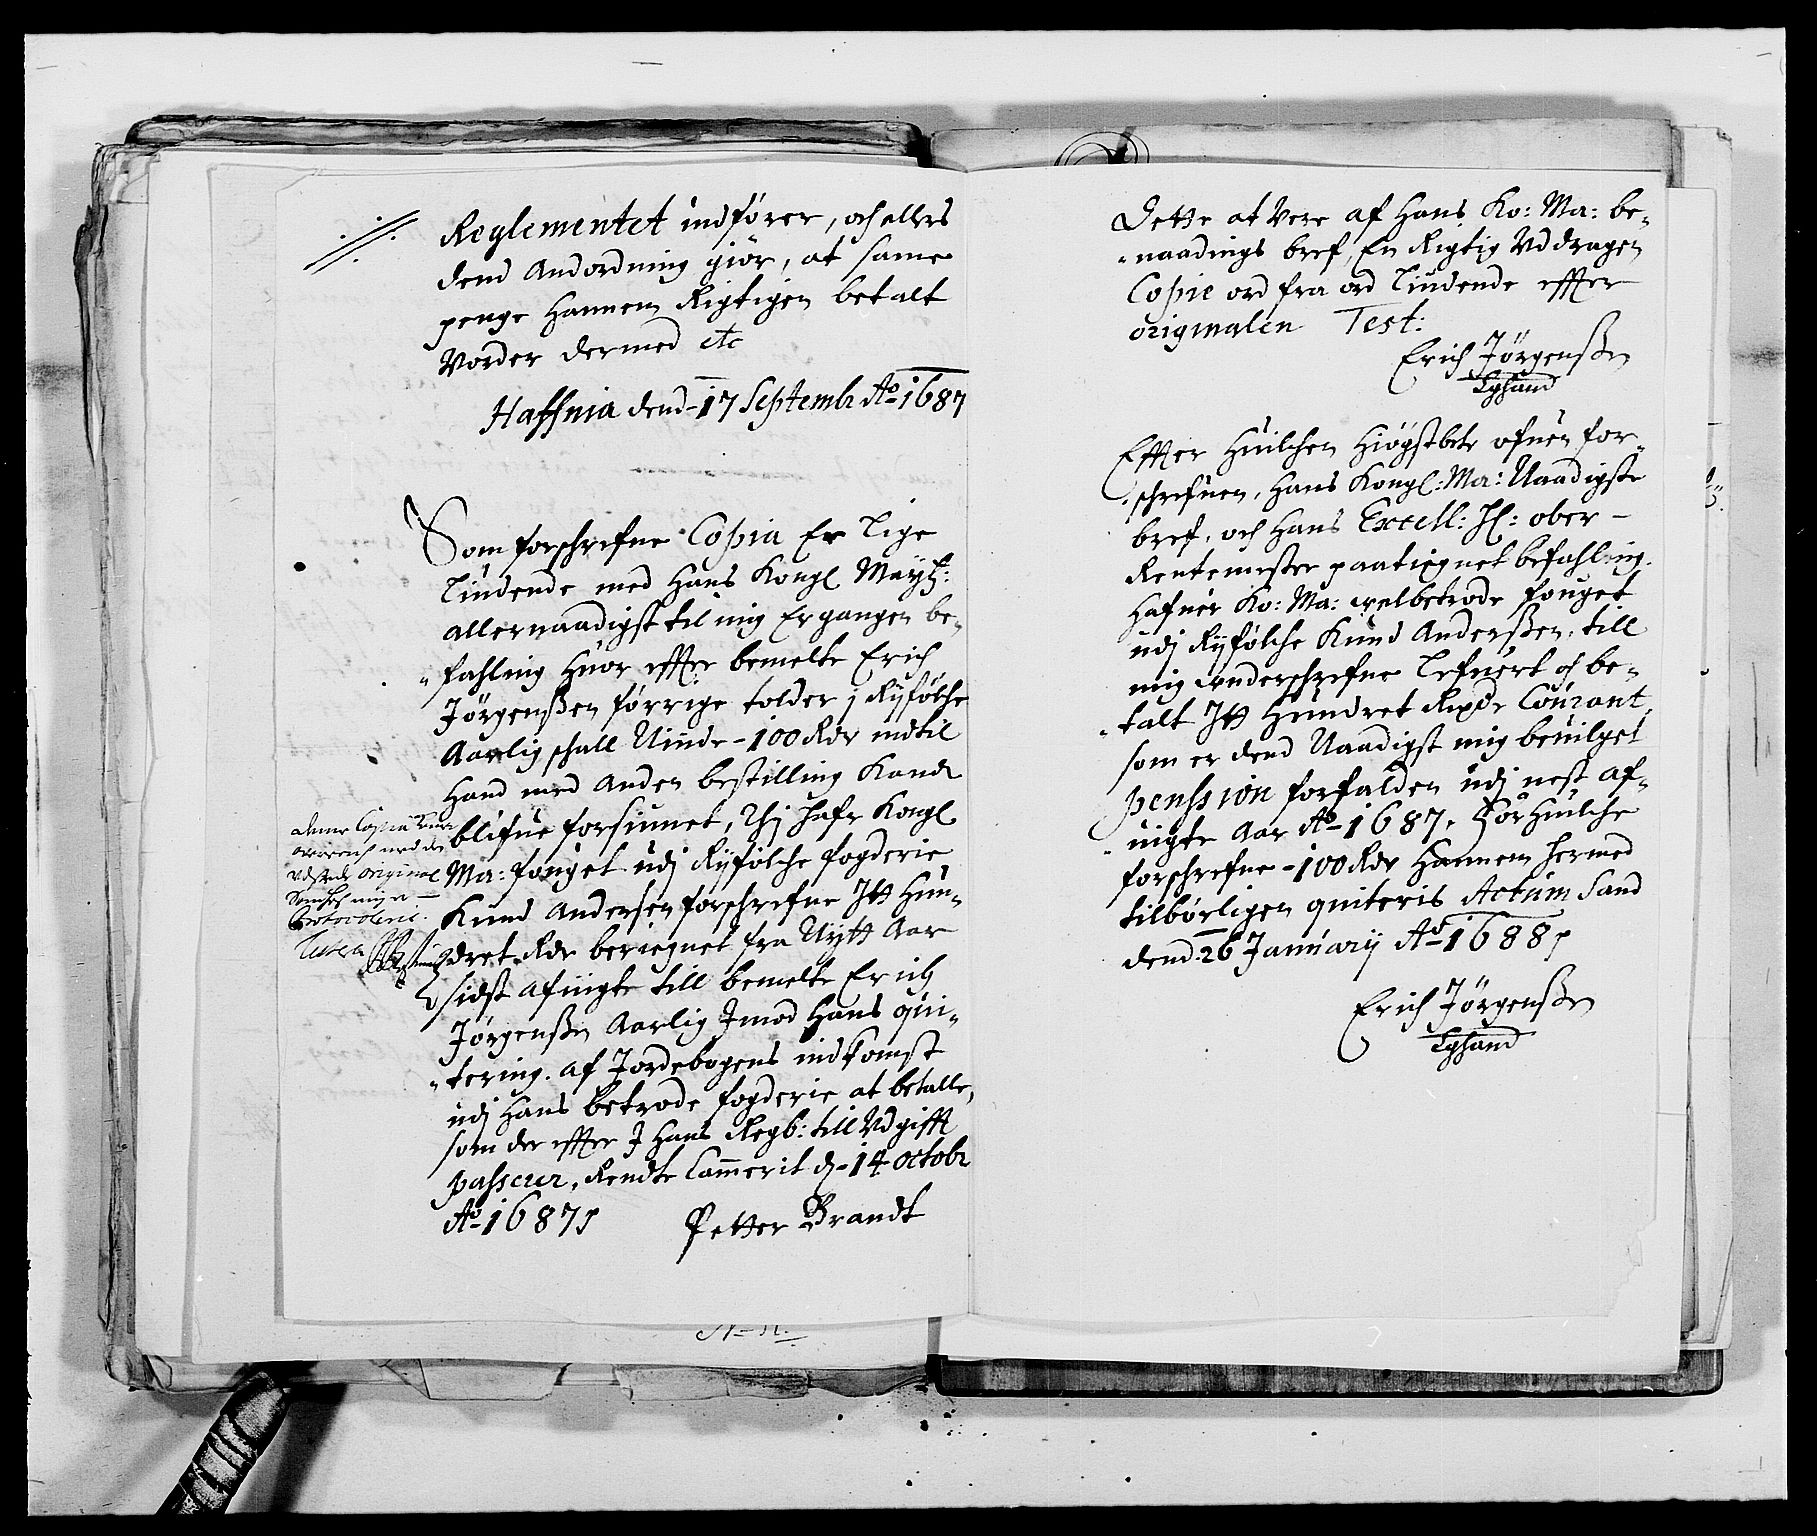 Reglementet indfører, och ellers
dend Andordning giör, at same
penge Hannem Rigtigen betalt
Vorder dermed etc
Haffnia dend 17 Septembr Ao 1687
Som forschrefne Copia Er Lige
Liudende med Hans Kongl Mayts:
allernaadigst til mig Ergangen be-
fahling Huor effter bemelte Erich
Jørgenssen førrige tolder j Ryfølche
Aarlig schall Niude 100 Rdr indtil
Hand med Anden bestilling Kand
blifue forsiunet, Thj hafr Kongl
Ma: fouget udj Ryfølche fogderie
Knud Andersen forschrefne Jtt Hun-
dret Rdr beriegnet fra Nytt Aar
sidst afuigte till bemelte Erich
Jørgenssen Aarlig Jmod Hans qui-
tering. af Jordebogens indkomst
udj Hans betrode fogderie at betalle,
som der effter J Hans Regb: till Vdgifft
passerer, Rendte Cammerit d 14 octobr
Ao 1687
Petter Brandt
denne Copia
med den
original
Protocolerit.
Testerer
Dette at Vere af Hans Ko: Ma: be-
naadings bref, En Rigtig Vddragen
Copie ord fra ord Liudende effter
originalen Test:
Erich Jørgenssen
Egsund
Effter Huilchen Høgstbete ofuen for-
schrefuen, Hans Kongl: Ma: Naadigste
bref, och Hans Excell: Hl: ober-
Rentemester paatiegnet befahling.
Hafuer Ko: Ma: welbetrode fouget
udj Ryfølche Knud Anderssen, till
mig underschrefne Lefuert och be-
talt Jtt Hundret Rixdr Courant,
som er dend Naadigst mig beuilget
penssion forfalden udj nest af-
uigte Aar Ao 1687, For Huilche
forschrefne 100 Rdr Hannem hermed
tilbørligen quiteris Actum Sand
dend 26 January Ao 1688
Erich Jørgenssen
Egsund